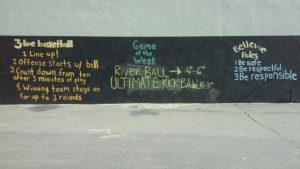 3 line basketball
1 Line up!
2. Offense starts w/ ball
3 Count down from ten
after 3 minutes of play
4. Winning team stays on
for up to 3 rounds
Game
of the
Week
RIVER BALL → 4-6
ULTIMATE KICKBALL K-3
Bellevue
Rules
1 Be safe
2 Be respectful
3 Be responsible